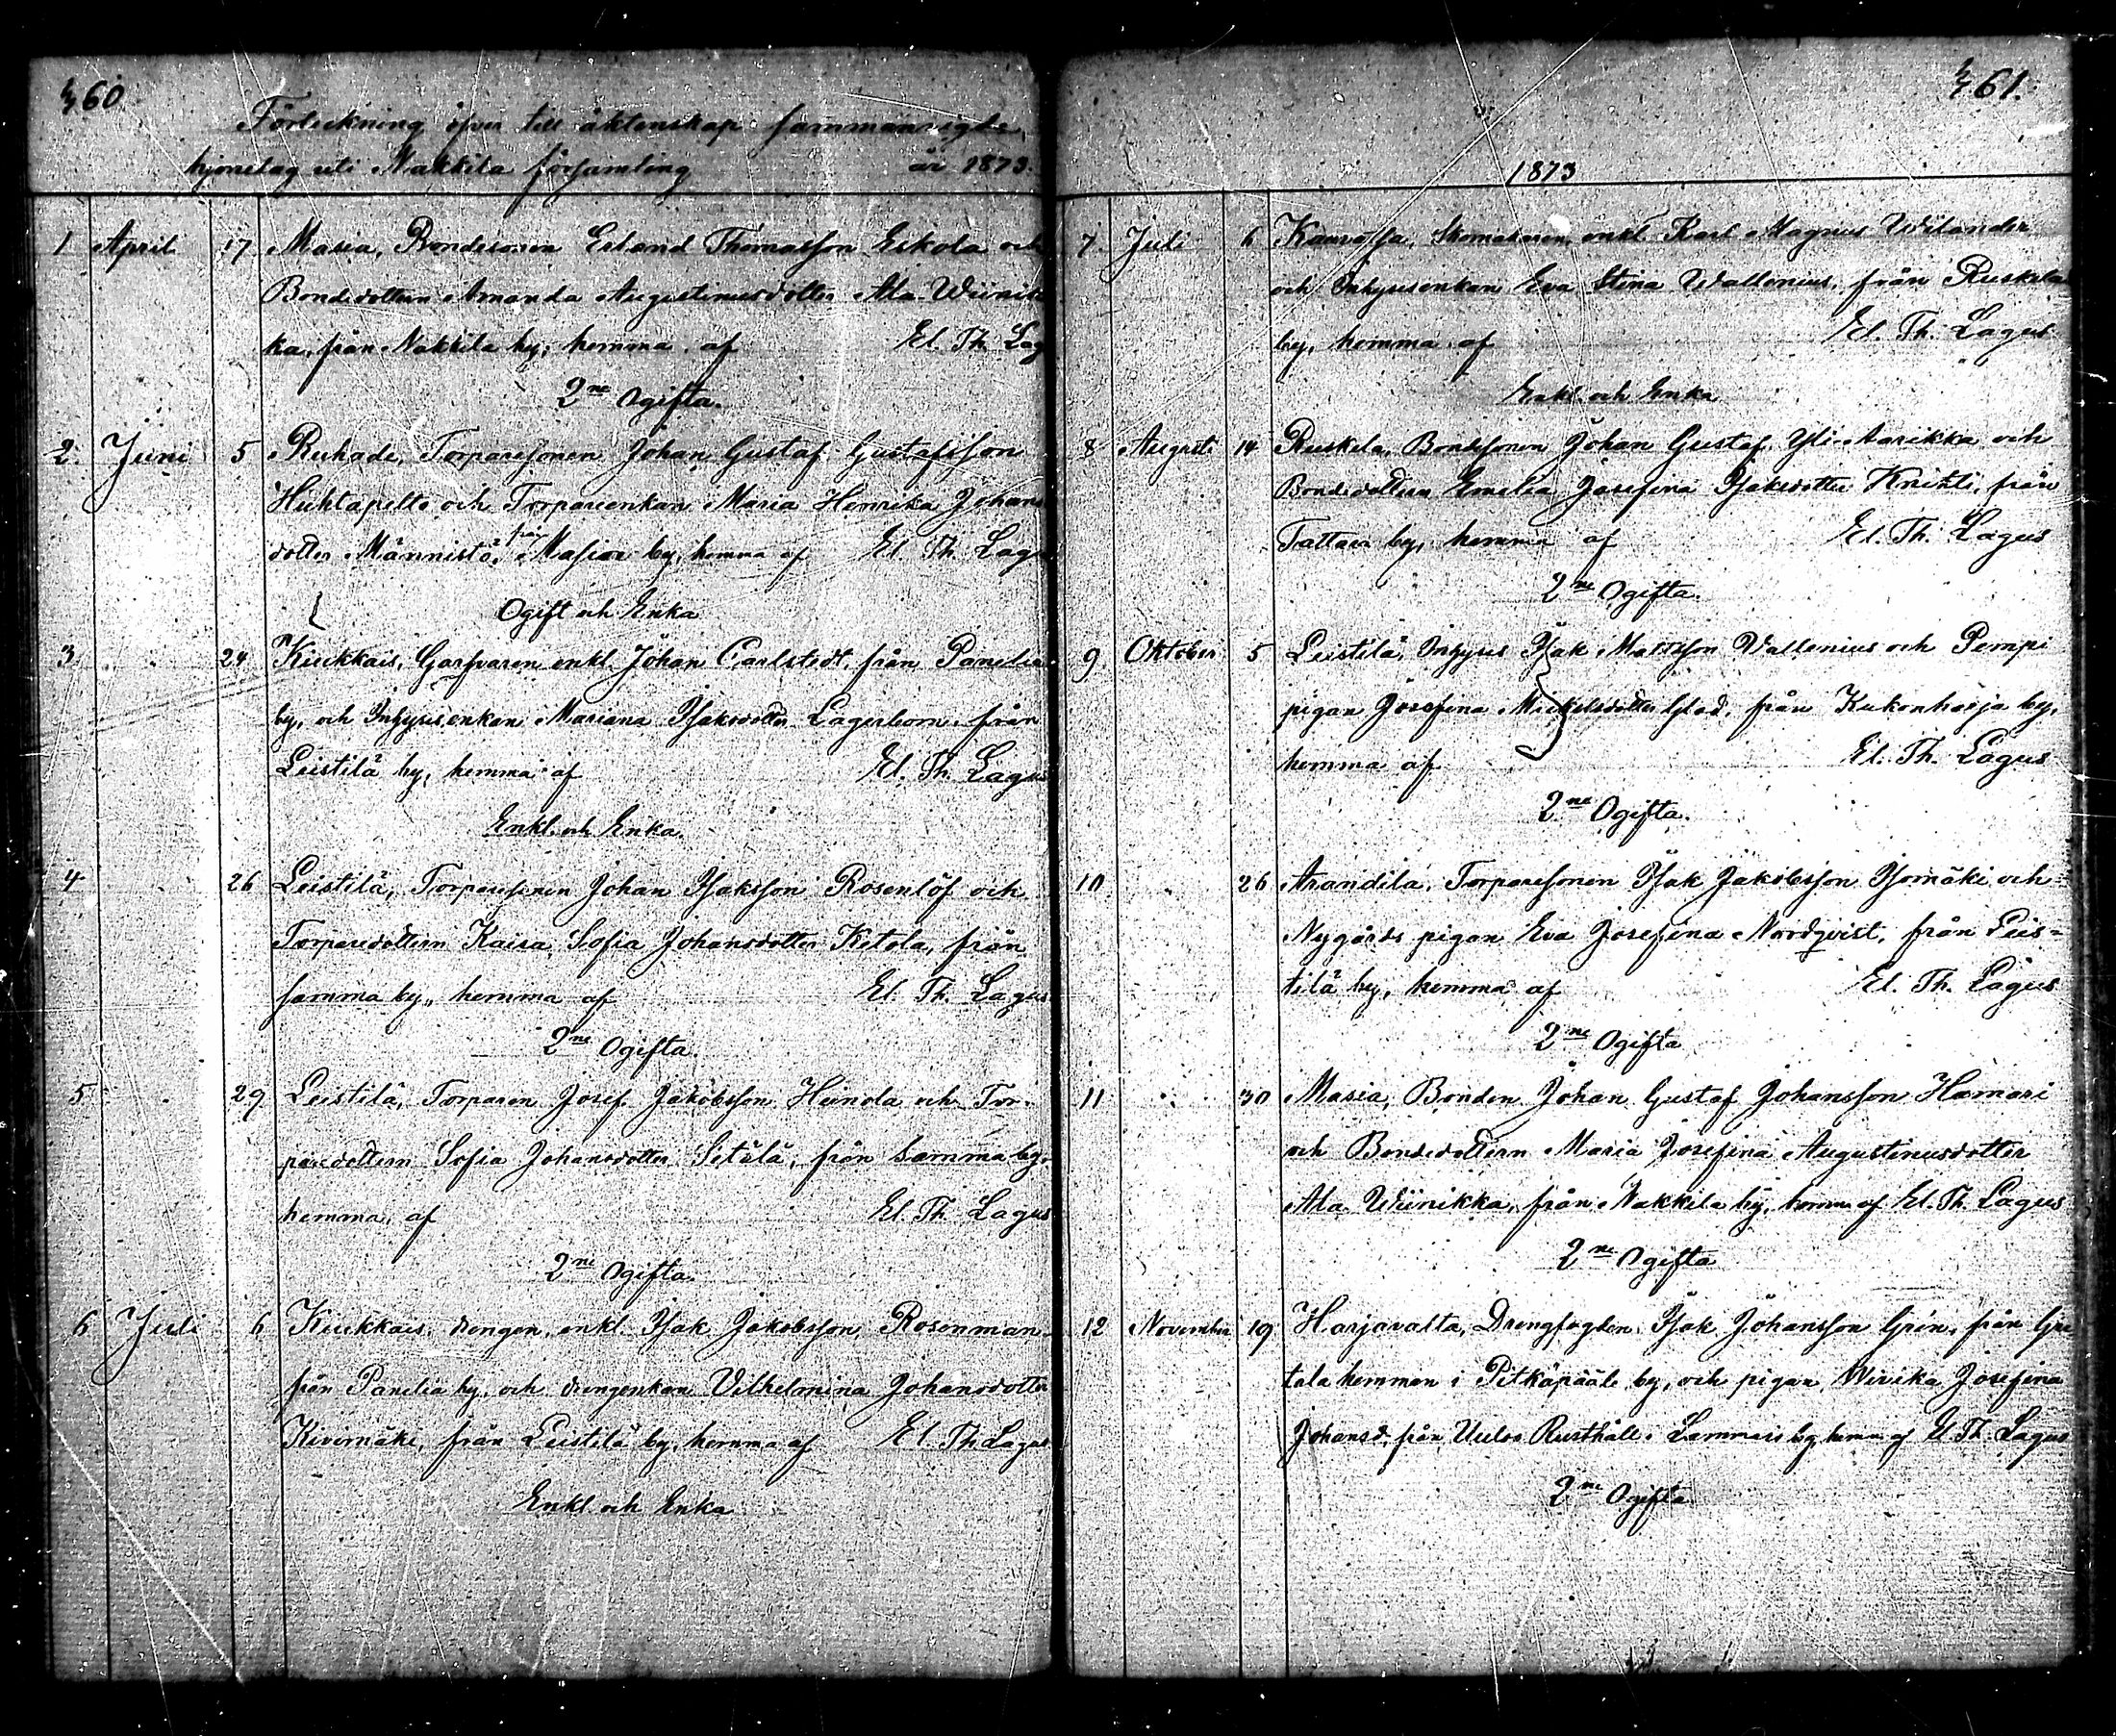 60
Förteckning öfver till äktenskap sammanvigde
hjonelag uti Nakkila församling år 1873.
1 April 17 Masia, Bondesonen Erland Thomasson Eskola och
Bondedottern Amanda Augustinusdotter Ala-Wiinik
ka, från Nakkila by; hemma af El. Th. Lag
2ne Ogifta.
2. Juni 5 Ruhade, Torparesonen Johan Gustaf Gustafsson
Huhtapelto och Torpareenkan Maria Henrika Johans
dotter Männistö, från Masia by, hemma af El. Th. Lagu
Ogift och Enka
3 " 24 Kiukkais, Garfvaren enkl. Johan Carlstedt, från Panelia
by, och Inhysesenkan Mariana Isaksdotter Lagerbom, från
Leistilä by, hemma af El. Th. Lagus
Enkl. och Enka.
4 26 Leistilä, Torparesonen Johan Isaksson Rosenlöf och
Torparedottern Kaisa Sofia Johansdotter Ketola, från
samma by, hemma af El. Th. Lagus
2ne Ogifta.
5 " 29 Leistilä, Torparen Josef Jakobsson Heinola och Tor-
paredottern Sofia Johansdotter Setälä, från samma by,
hemma af El. Th. Lagus
2ne Ogifta.
6 Juli 6 Kiukkais, drengen, enkl. Isak Jakobsson Rosenman
från Panelia by, och drengenkan Vilhelmina Johansdotter
Kivimäki, från Leistilä by, hemma af El. Th. Lagus
Enkl. och Enka
61.
1873
7. Juli 6 Kauvatsa, Skomakaren, enkl. Karl Magnus Wilander
och Inhysesenkan Eva Stina Wallenius, från Ruskila
by, hemma af El. Th. Lagus
Enkl. och Enka
8 Augusti 14 Ruskila, Bondesonen Johan Gustaf Yli-Aarikka och
Bondedottern Emelia Josefina Isaksdotter Knihti, från
Tattara by, hemma af El. Th. Lagus
2ne Ogifta.
9 Oktober 5 Leistilä, Inhyses Isak Matsson Wallenius och Pempi
pigan Josefina Mickelsdotter Glad, från Kukonharja by,
hemma af El. Th. Lagus
2ne Ogifta.
10 " 26 Arandila, Torparesonen Isak Jakobsson Isomäki och
Nygårds pigan Eva Josefina Nordqvist, från Leis=
tilä by, hemma af El. Th. Lagus
2ne Ogifta
11 " 30 Masia, Bonden Johan Gustaf Johansson Hamari
och Bondedottern Maria Josefina Augustinusdotter
Ala-Wiinikka, från Nakkila by, hemma af El. Th. Lagus
2ne Ogifta
12 November 19 Harjavalta, Drengfogden Isak Johansson Grön, från
tala hemman i Pitkäpäälä by, och pigan Wivika Josefina
Johansd. från Rusthåll i Lammais by, hemma af El. Th. Lagus
2ne Ogifta